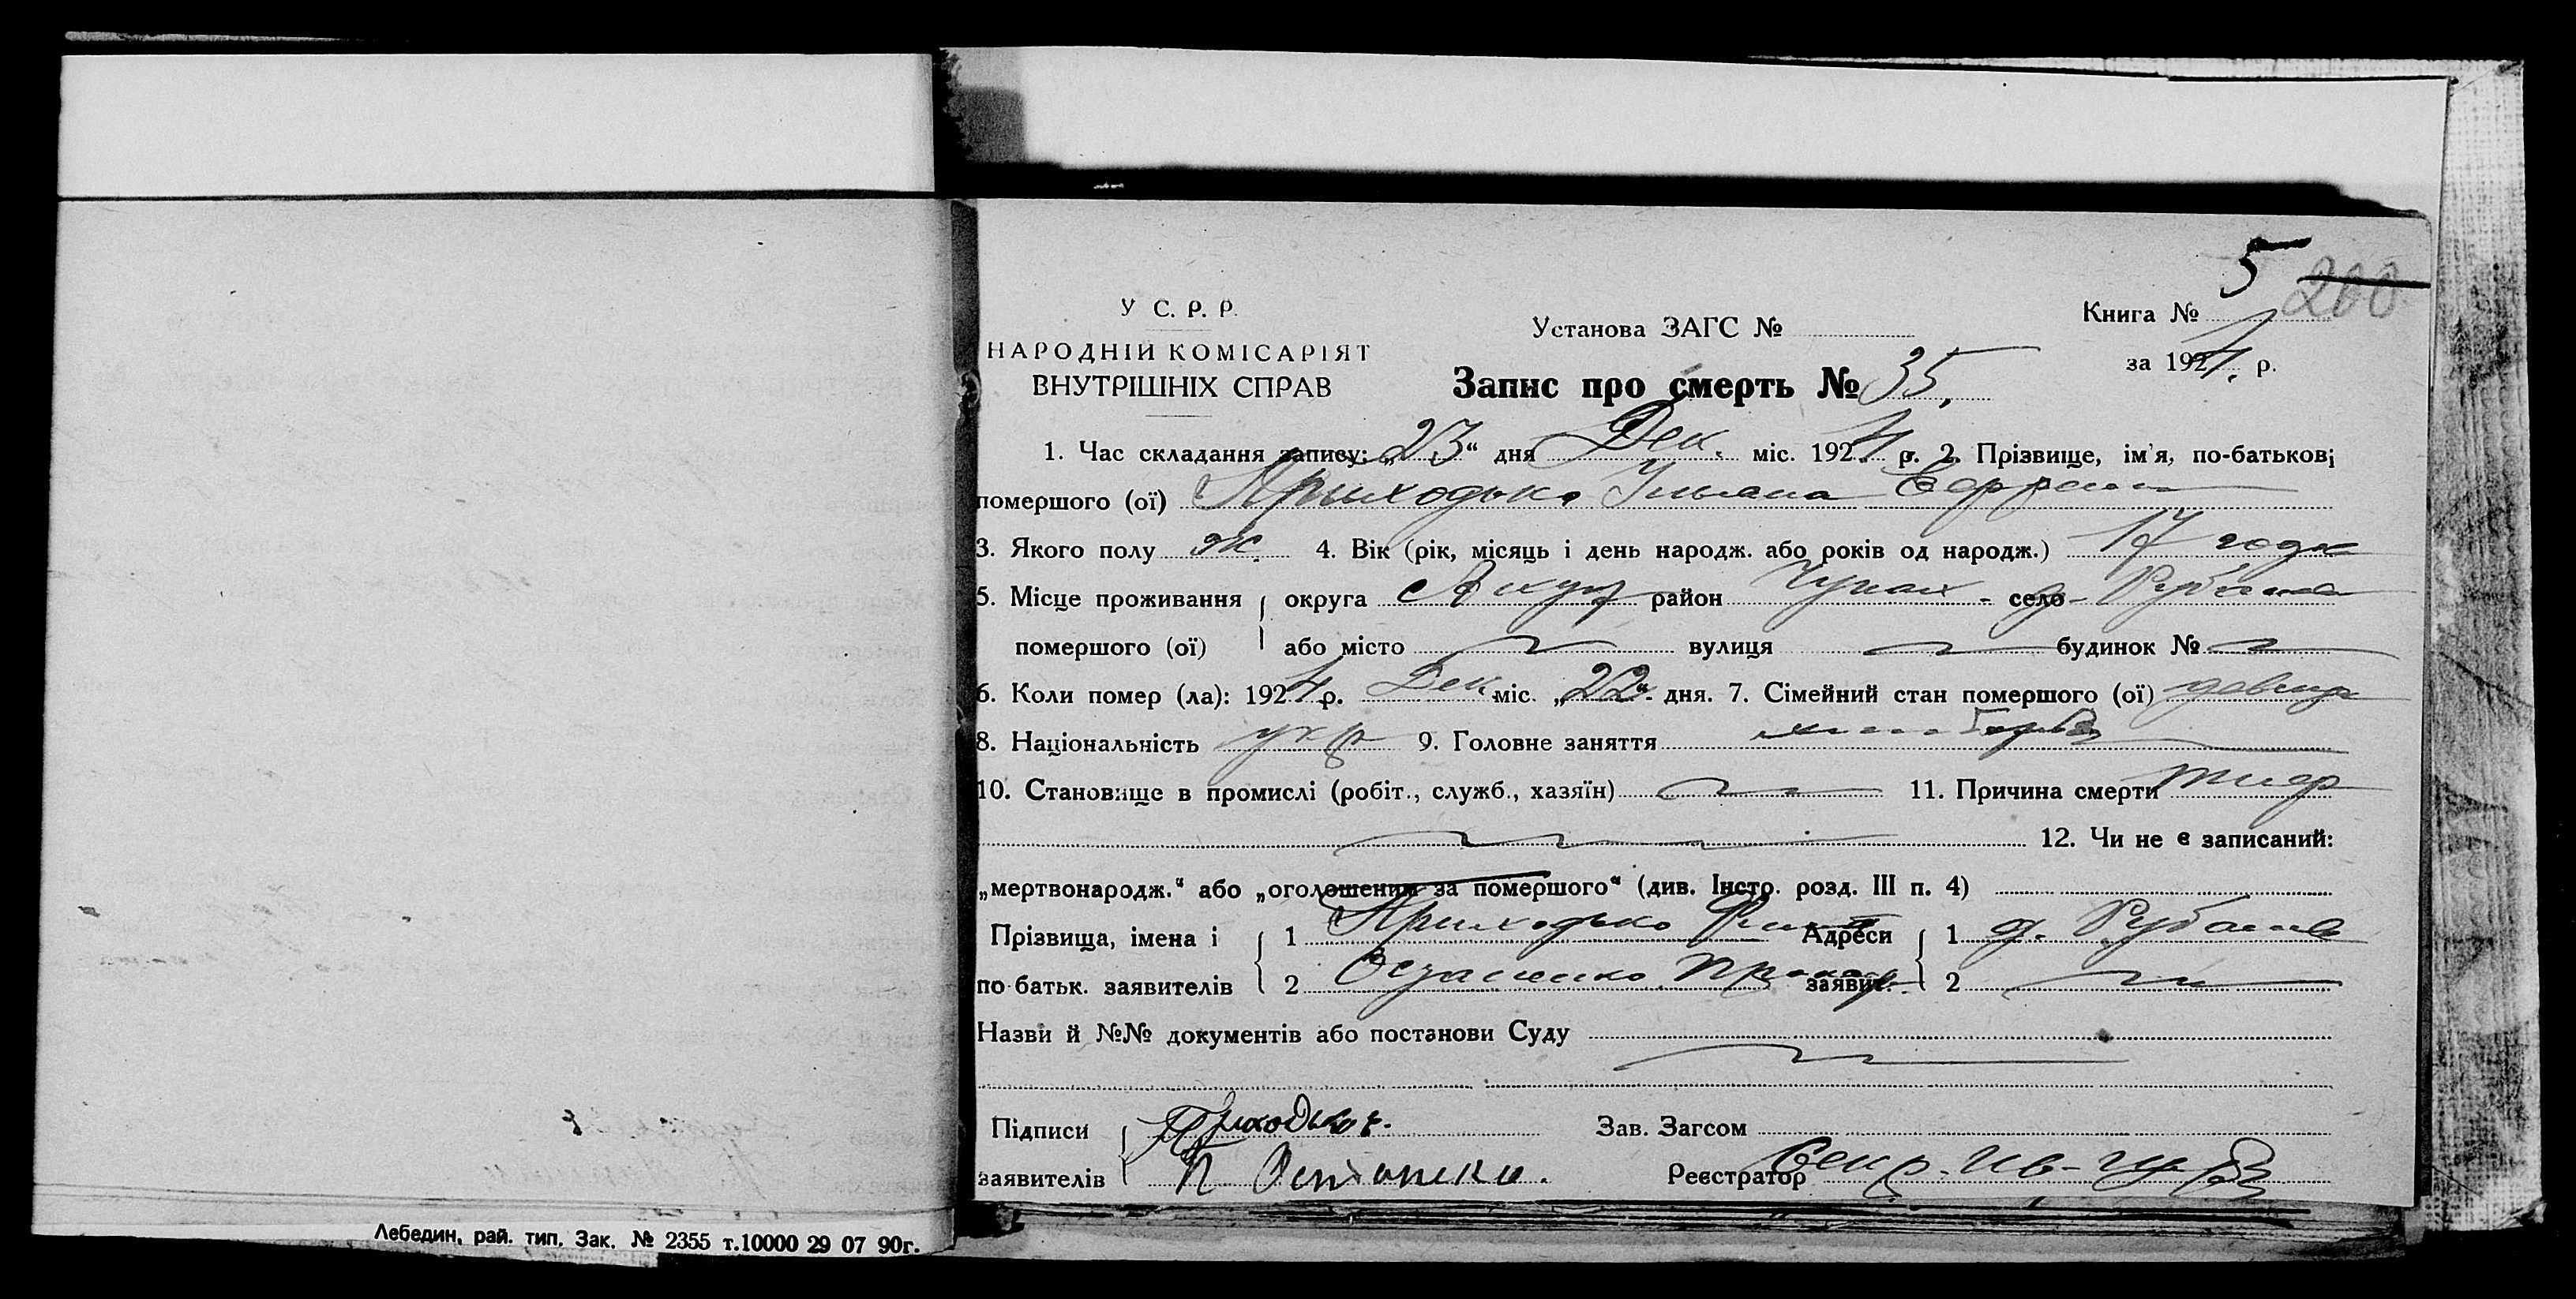 5 200
У С. Р. Р.
НАРОДНІЙ КОМІСАРІЯТ
ВНУТРІШНІХ СПРАВ
Установа ЗАГС №
Книга №
за 1924 р.
Запис про смерть № 35.
1. Час складання запису: „23“ дня Дек. міс. 1924 р. 2. Прізвище, ім'я, по-батькові
помершого (ої) Приходько Ульяна
3. Якого полу ж. 4. Вік (рік, місяць і день народж. або років од народж.) 17 годов
5. Місце проживання { округа район село
помершого (ої) або місто вулиця будинок №
6. Коли помер (ла): 1924 р. Дек. міс. „22“ дня. 7. Сімейний стан помершого (ої) девица
8. Національність укр 9. Головне заняття
10. Становище в промислі (робіт., служб., хазяїн) 11. Причина смерти тиф
12. Чи не є записаний:
„мертвонародж.“ або „оголошеним за помершого“ (див. Інстр. розд. III п. 4)
Прізвища, імена і { 1 Приходько Адреси { 1 д.
по батьк. заявителів 2 Остапенко заявит. 2
Назви й №№ документів або постанови Суду
Підписи { Приходько
заявителів П Остапенко.
Зав. Загсом
Реєстратор
Лебедин, рай. тип. Зак. № 2355 т.10000 29 07 90г.